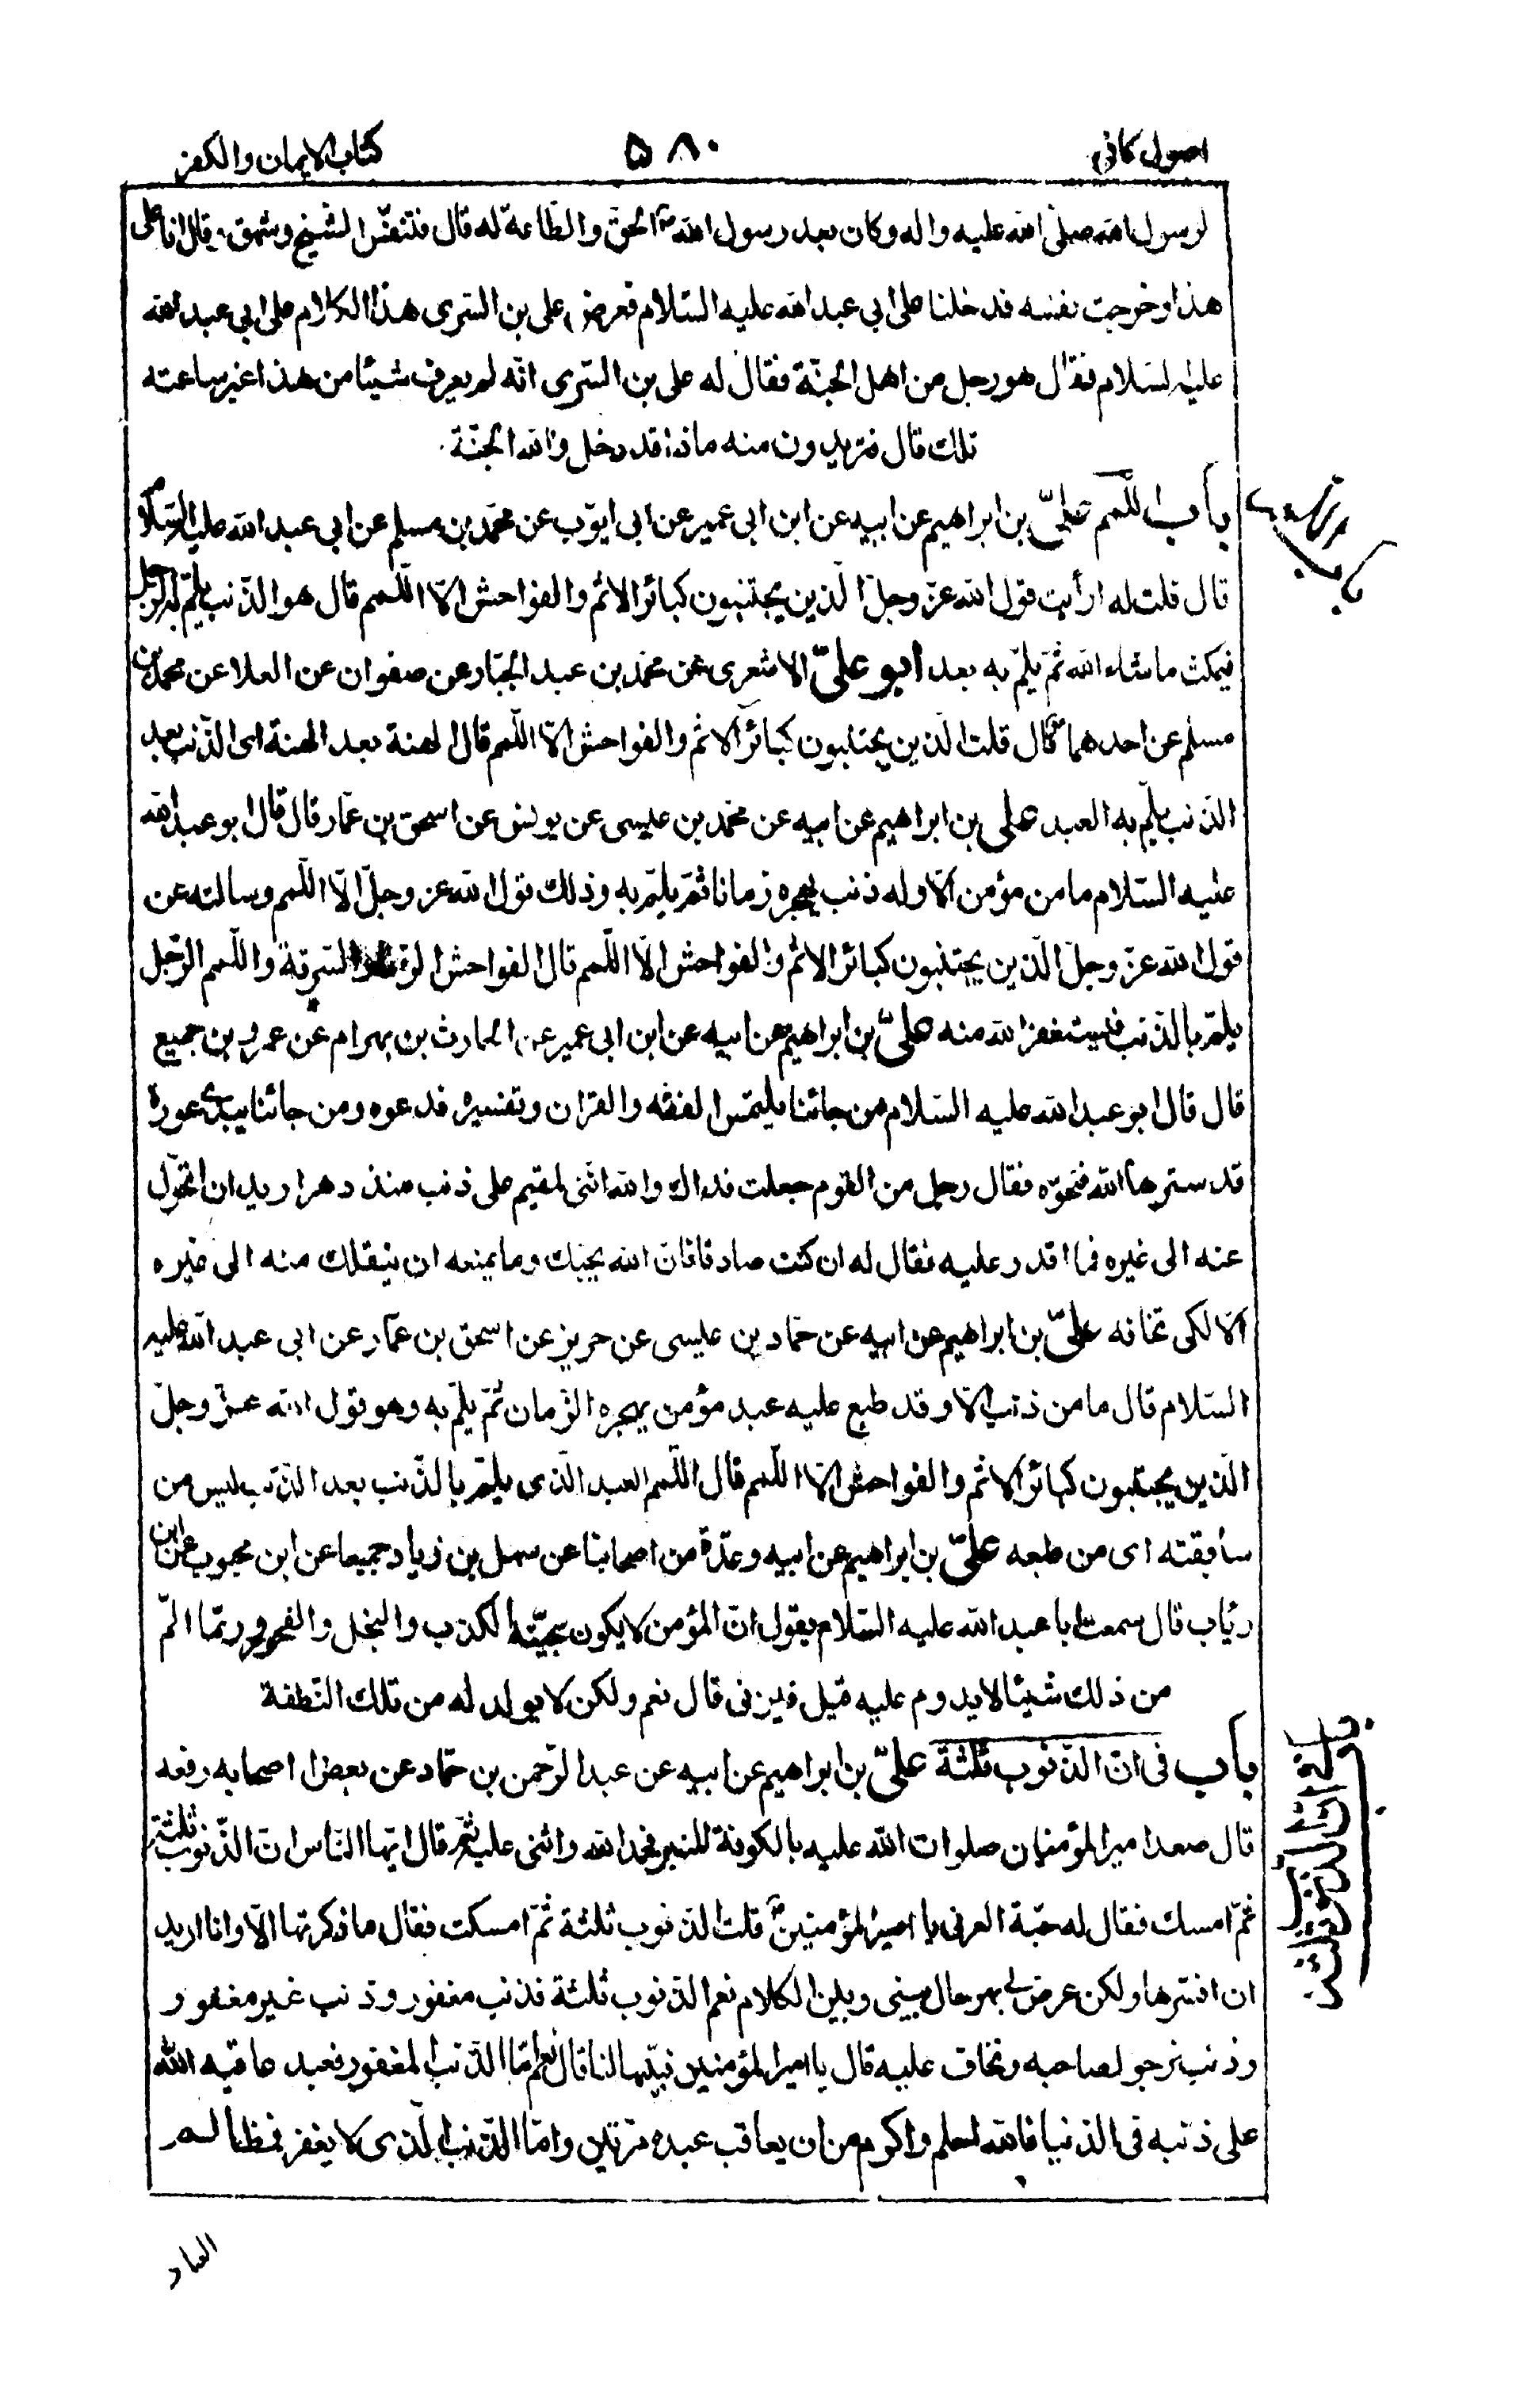 اصول كافى
۵۸۰
كتاب الايمان والكفر
لرسول الله صلى الله عليه واله وكان بعد رسول الله ص الحق والطاعة له قال فتنفّس الشيخ وشهق وقال انا على
هذا وخرجت نفسه فدخلنا على ابى عبد الله عليه السّلام فعرض على بن السّرى هذا الكلام على ابى عبد الله
عليه السّلام فقال هو رجل من اهل الجنّة فقال له على بن السّرى انّه لم يعرف شيئا من هذا غير ساعته
تلك قال فتريدون منه ماذا قد دخل والله الجنّة
باب اللّمم علىّ بن ابراهيم عن ابيه عن ابن ابى عمير عن ابى ايوّب عن محمّد بن مسلم عن ابى عبد الله عليه السّلام
قال قلت له ارأيت قول الله عزّ وجلّ الّذين يجتنبون كبائر الاثم والفواحش الّا اللّمم قال هو الذّنب يلمّ به الرّجل
فيمكث ما شاء الله ثمّ يلمّ به بعد ابو علىّ الاشعرى عن محمّد بن عبد الجبّار عن صفوان عن العلا عن محمّد بن
مسلم عن احدهما ع قال قلت الّذين يجتنبون كبائر الاثم والفواحش الّا اللّمم قال الهنة بعد الهنة اى الذّنب بعد
الذّنب يلمّ به العبد على بن ابراهيم عن ابيه عن محمّد بن عيسى عن يونس عن اسحق بن عمّار قال قال ابو عبد الله
عليه السّلام ما من مؤمن الّا وله ذنب يهجره زمانا ثمّ يلمّ به وذلك قول الله عز وجلّ الّا اللّمم وسالته عن
قول الله عزّ وجلّ الّذين يجتنبون كبائر الاثم والفواحش الّا اللّمم قال الفواحش الزنا والسّرقة واللّمم الرّجل
يلمّ بالذّنب فيستغفر الله منه علىّ بن ابراهيم عن ابيه عن ابن ابى عمير عن الحارث بن بهرام عن عمرو بن جميع
قال قال ابو عبد الله عليه السّلام من جائنا يلتمس الفقه والقران وتفسيره فدعوه ومن جائنا يبدى عورة
قد سترها الله فنحّوه فقال رجل من القوم جعلت فداك والله انّنى لمقيم على ذنب منذ دهر اريد ان اتحوّل
عنه الى غيره فما اقدر عليه فقال له ان كنت صادقا فانّ الله يحبّك وما يمنعه ان ينقلك منه الى غيره
الّا لكى تخافه علىّ بن ابراهيم عن ابيه عن حمّاد بن عيسى عن حريز عن اسحق بن عمّار عن ابى عبد الله عليه
السّلام قال ما من ذنب الّا وقد طبع عليه عبد مؤمن يهجره الزّمان ثمّ يلمّ به وهو قول الله عزّ وجلّ
الّذين يجتنبون كبائر الاثم والفواحش الّا اللّمم قال اللّمم العبد الّذى يلمّ بالذّنب بعد الذّنب ليس من
سليقته اى من طبعه علىّ بن ابراهيم عن ابيه وعدّة من اصحابنا عن سهل بن زياد جميعا عن ابن محبوب عن ابن
رئاب قال سمعت ابا عبد الله عليه السّلام يقول انّ المؤمن لا يكون سجيّته الكذب والبخل والفجور وربّما المّ
من ذلك شيئا لا يدوم عليه قيل فيزنى قال نعم ولكن لا يولد له من تلك النّطفة
باب فى انّ الذّنوب ثلثة علىّ بن ابراهيم عن ابيه عن عبد الرّحمن بن حمّاد عن بعض اصحابه رفعه
قال صعد امير المؤمنين صلوات الله عليه بالكوفة المنبر فحمد الله واثنى عليه ثمّ قال ايّها النّاس انّ الذّنوب ثلثة
ثمّ امسك فقال له حبّة العرنى يا امير المؤمنين ع قلت الذّنوب ثلثة ثمّ امسكت فقال ما ذكرتها الّا وانا اريد
ان افسّرها ولكن عرض لى بهر حال بينى وبين الكلام نعم الذّنوب ثلثة فذنب مغفور وذنب غير مغفور
وذنب نرجو لصاحبه ونخاف عليه قال يا امير المؤمنين فبيّنها لنا قال نعم امّا الذّنب المغفور فعبد عاقبه الله
على ذنبه فى الدّنيا فالله احلم واكرم من ان يعاقب عبده مرّتين وامّا الذّنب الّذى لا يغفر فمظالم
العباد
باب اللمم
باب فى ان الذنوب ثلثة